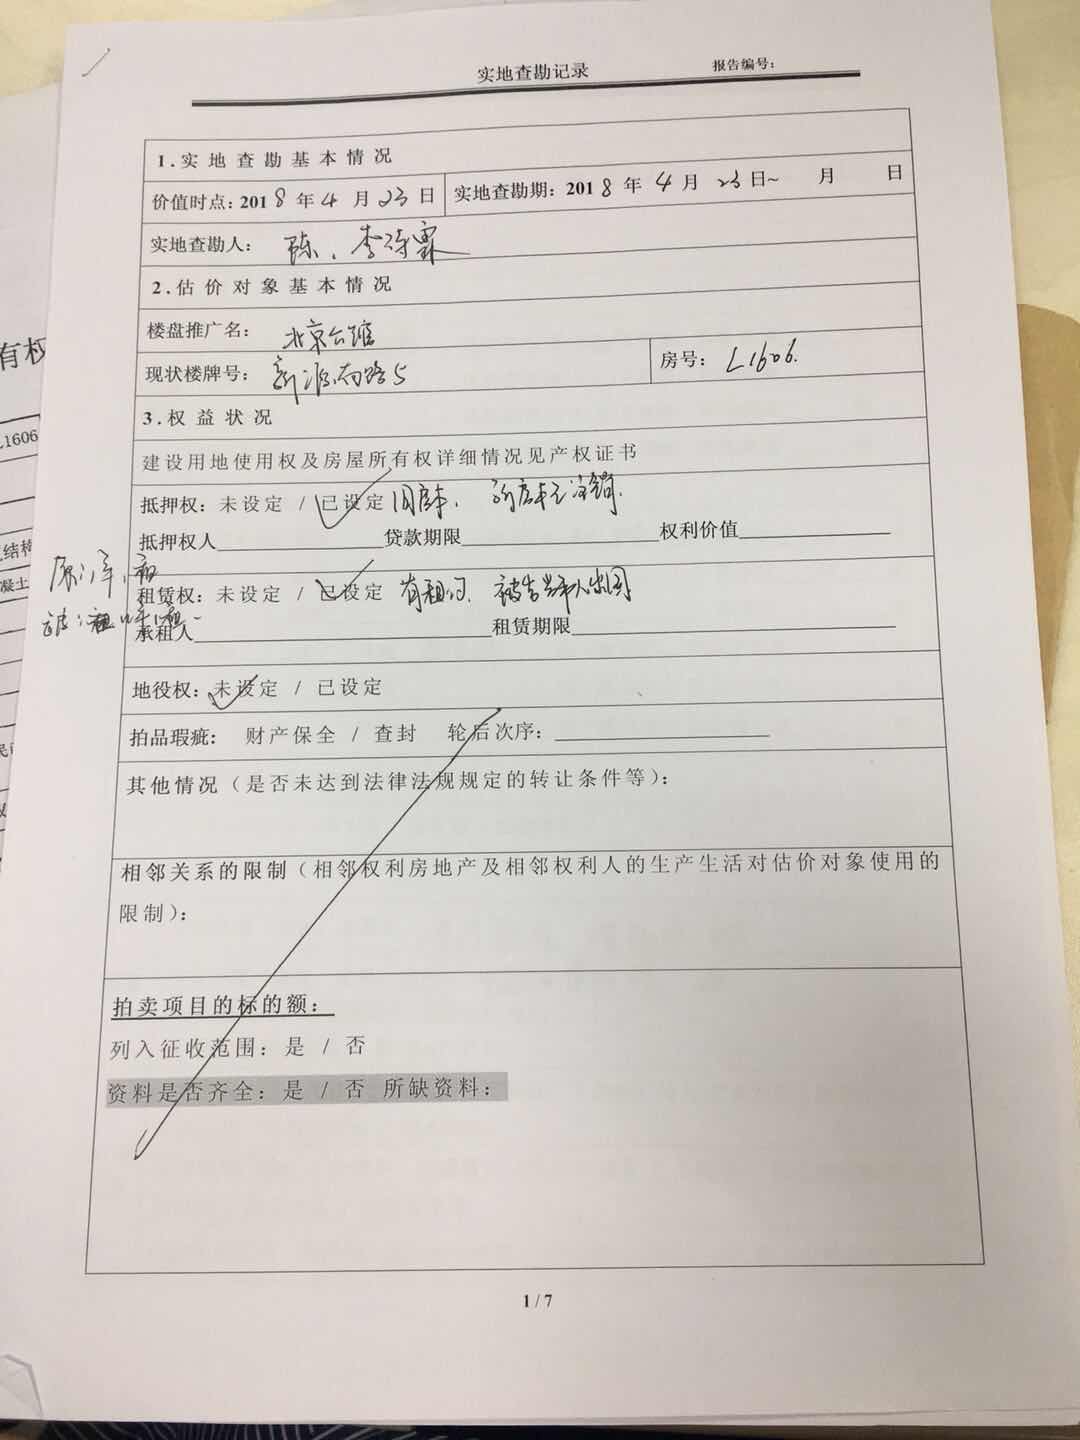 实地查勘记录 报告编号：
1.实地查勘基本情况
价值时点：2018年4月23日 实地查勘期：2018年4月23日~ 月 日
实地查勘人： 陈、李诗霖
2.估价对象基本情况
楼盘推广名： 北京公馆
现状楼牌号： 新源南路5 房号： L1606.
3.权益状况
建设用地使用权及房屋所有权详细情况见产权证书
抵押权：未设定 / 已设定 旧房本、新房本已注销.
抵押权人 贷款期限 权利价值
租赁权：未设定 / 已设定 有租约、
承租人 租赁期限
地役权：未设定 / 已设定
拍品瑕疵： 财产保全 / 查封 轮后次序：
其他情况（是否未达到法律法规规定的转让条件等）：
相邻关系的限制（相邻权利房地产及相邻权利人的生产生活对估价对象使用的
限制）：
拍卖项目的标的额：
列入征收范围：是 / 否
资料是否齐全：是 / 否 所缺资料：
1 / 7
有权
L1606
结构
凝土